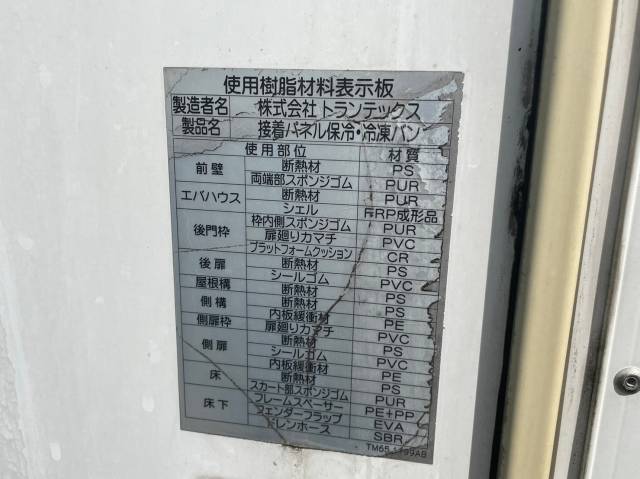 使用樹脂材料表示板
製造者名 株式会社 トランテックス
製品名 接着パネル保冷・冷凍バン
使用部位 材質
前壁 断熱材 PS
両端部スポンジゴム PUR
エバハウス 断熱材 PUR
シェル FRP成形品
後門枠 枠内側スポンジゴム PUR
扉廻りカマチ PVC
プラットフォームクッション CR
後扉 断熱材 PS
シールゴム PVC
屋根構 断熱材 PS
側構 断熱材 PS
内板緩衝材 PE
側扉枠 扉廻りカマチ PVC
側扉 断熱材 PS
シールゴム PVC
内板緩衝材 PE
床 断熱材 PS
床下 スカート部スポンジゴム PUR
フレームスペーサー PE+PP
フェンダーフラップ EVA
ドレンホース SBR